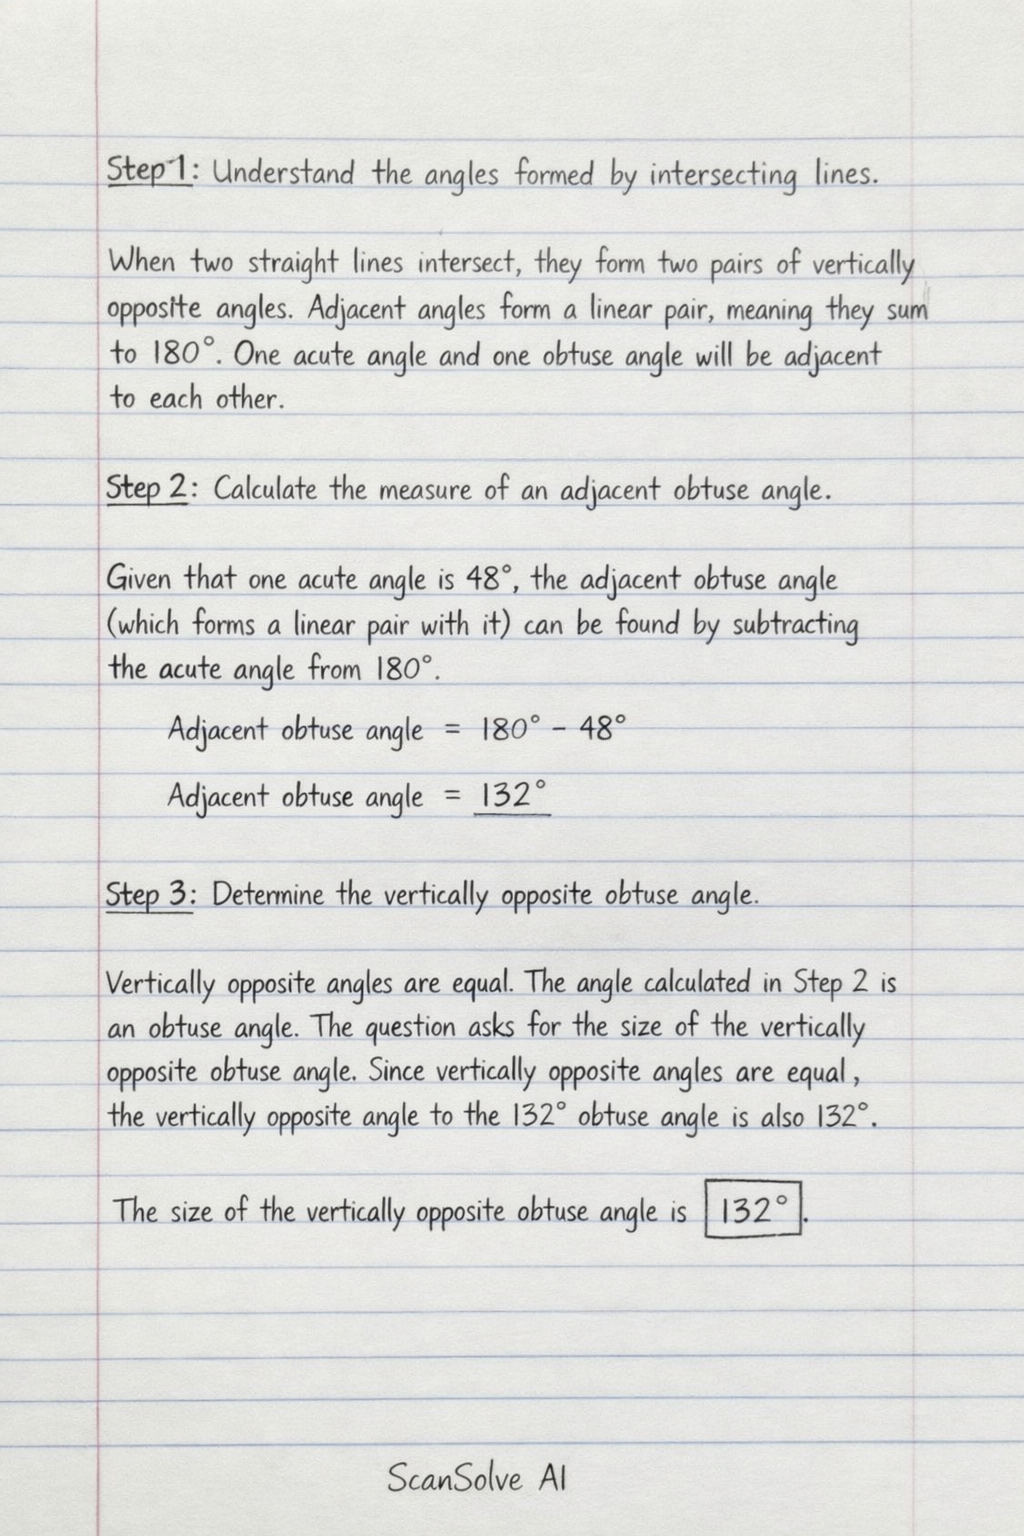 Step 1: Understand the angles formed by intersecting lines.
When two straight lines intersect, they form two pairs of vertically
opposite angles. Adjacent angles form a linear pair, meaning they sum
to 180°. One acute angle and one obtuse angle will be adjacent
to each other.
Step 2: Calculate the measure of an adjacent obtuse angle.
Given that one acute angle is 48°, the adjacent obtuse angle
(which forms a linear pair with it) can be found by subtracting
the acute angle from 180°.
Adjacent obtuse angle = 180° - 48°
Adjacent obtuse angle = 132°
Step 3: Determine the vertically opposite obtuse angle.
Vertically opposite angles are equal. The angle calculated in Step 2 is
an obtuse angle. The question asks for the size of the vertically
opposite obtuse angle. Since vertically opposite angles are equal,
the vertically opposite angle to the 132° obtuse angle is also 132°.
The size of the vertically opposite obtuse angle is 132°.
ScanSolve AI